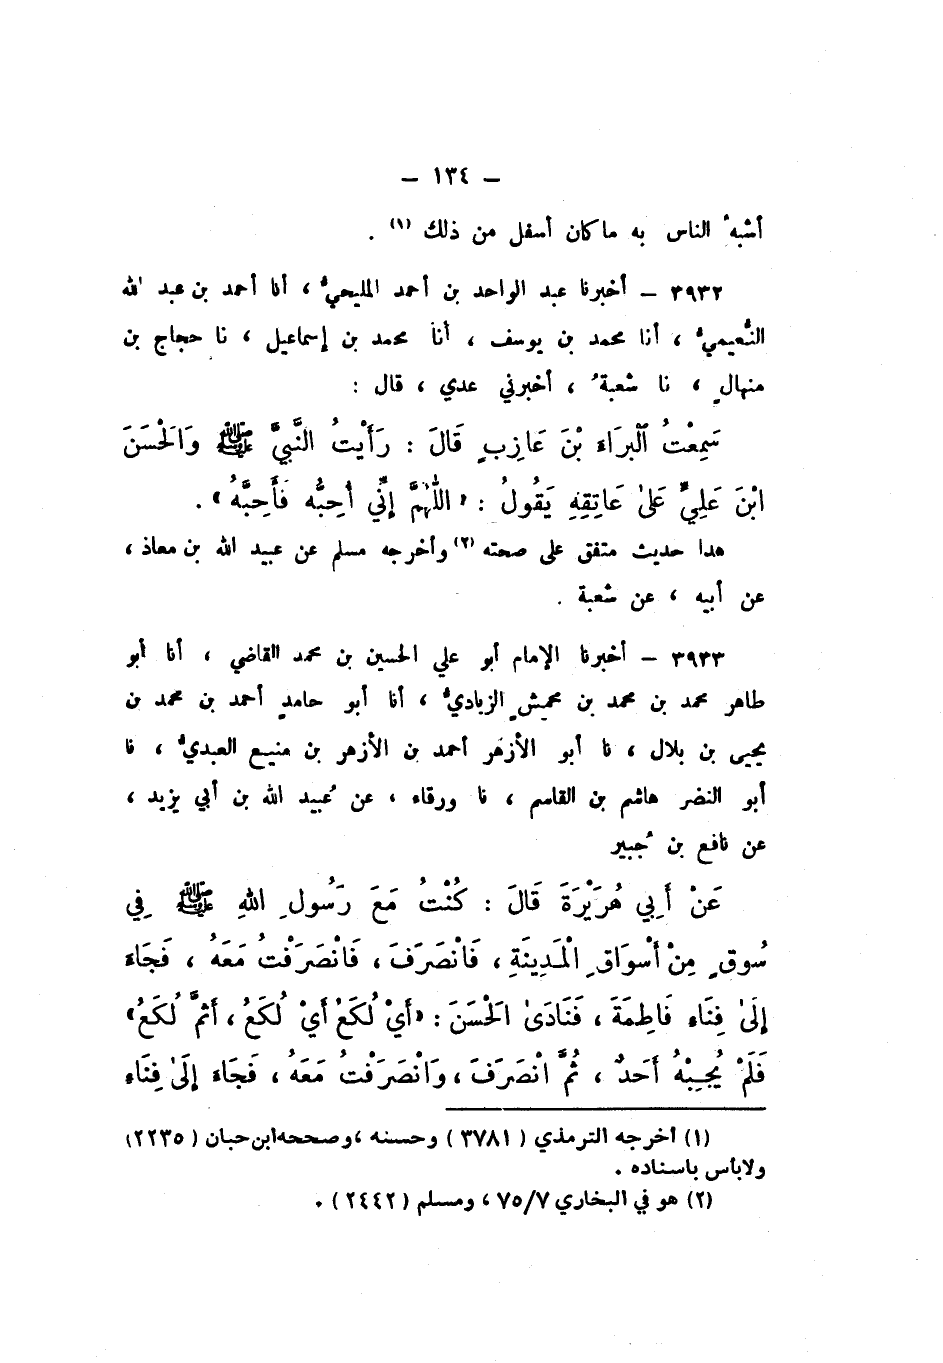 – ١٣٤ –
أشبهُ الناس به ما كان أسفل من ذلك (١) .
٣٩٣٢ – أخبرنا عبد الواحد بن أحمد المليحيُّ ، أنا أحمد بن عبد الله
النُّعيميُّ ، أنا محمد بن يوسف ، أنا محمد بن إسماعيل ، نا حجاج بن
منهالٍ ، نا شعبةُ ، أخبرني عدي ، قال :
سَمِعْتُ ٱلْبرَاءَ بْنَ عَازِبٍ قَالَ : رَأَيْتُ النَّبِيَّ ﷺ وَالْحَسَنَ
ابْنَ عَلِيٍّ عَلىٰ عَاتِقِهِ يَقُولُ : « اللّٰهُمَّ إِنِّي أُحِبُّه فَأَحِبَّهُ » .
هدا حديث متفق على صحته (٢) وأخرجه مسلم عن عبيد الله بن معاذ ،
عن أبيه ، عن شعبة .
٣٩٣٣ – أخبرنا الإمام أبو علي الحسين بن محمد القاضي ، أنا أبو
طاهر محمد بن محمد بن محمِشٍ الزياديُّ ، أنا أبو حامدٍ أحمد بن محمد بن
يحيى بن بلال ، نا أبو الأزهَر أحمد بن الأزهر بن منيع العبديُّ ، نا
أبو النضر هاشم بن القاسم ، نا ورقاء ، عن عُبيد الله بن أبي يزيد ،
عن نافع بن جُبير
عَنْ أَبِي هُرَيْرَةَ قَالَ : كُنْتُ مَعَ رَسُولِ اللهِ ﷺ فِي
سُوقٍ مِنْ أَسْوَاقِ الْمَدِينَةِ ، فَانْصَرَفَ ، فَانْصَرَفْتُ مَعَهُ ، فَجَاءَ
إِلَىٰ فِنَاءِ فَاطِمَةَ ، فَنَادَىٰ الْحَسَنَ : « أَيْ لُكَعُ أَيْ لُكَعُ ، أَثَمَّ لُكَعُ »
فَلَمْ يُجِبْهُ أَحَدٌ ، ثُمَّ انْصَرَفَ ، وَانْصَرَفْتُ مَعَهُ ، فَجَاءَ إِلَىٰ فِنَاءِ
(١) أخرجه الترمذي ( ٣٧٨١ ) وحسنه ، وصححه ابن حبان ( ٢٢٣٥ )
ولا بأس باسناده .
(٢) هو في البخاري ٧٥/٧ ، ومسلم ( ٢٤٤٢ ) .